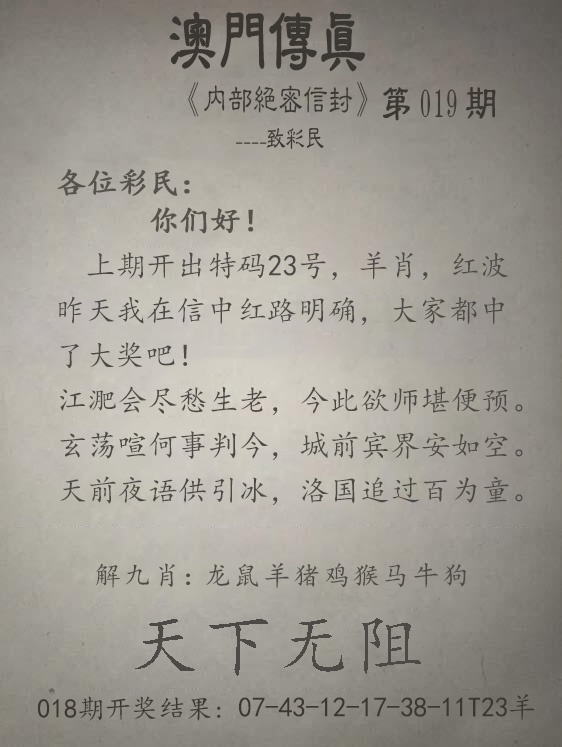 澳門傳眞
《内部絕密信封》第019期
----致彩民
各位彩民：
你们好！
上期开出特码23号，羊肖，红波
昨天我在信中红路明确，大家都中
了大奖吧！
江淝会尽愁生老，今此欲师堪便预。
玄荡喧何事判今，城前宾界安如空。
天前夜语供引冰，洛国追过百为童。
解九肖：龙鼠羊猪鸡猴马牛狗
天下无阻
018期开奖结果：07-43-12-17-38-11T23羊